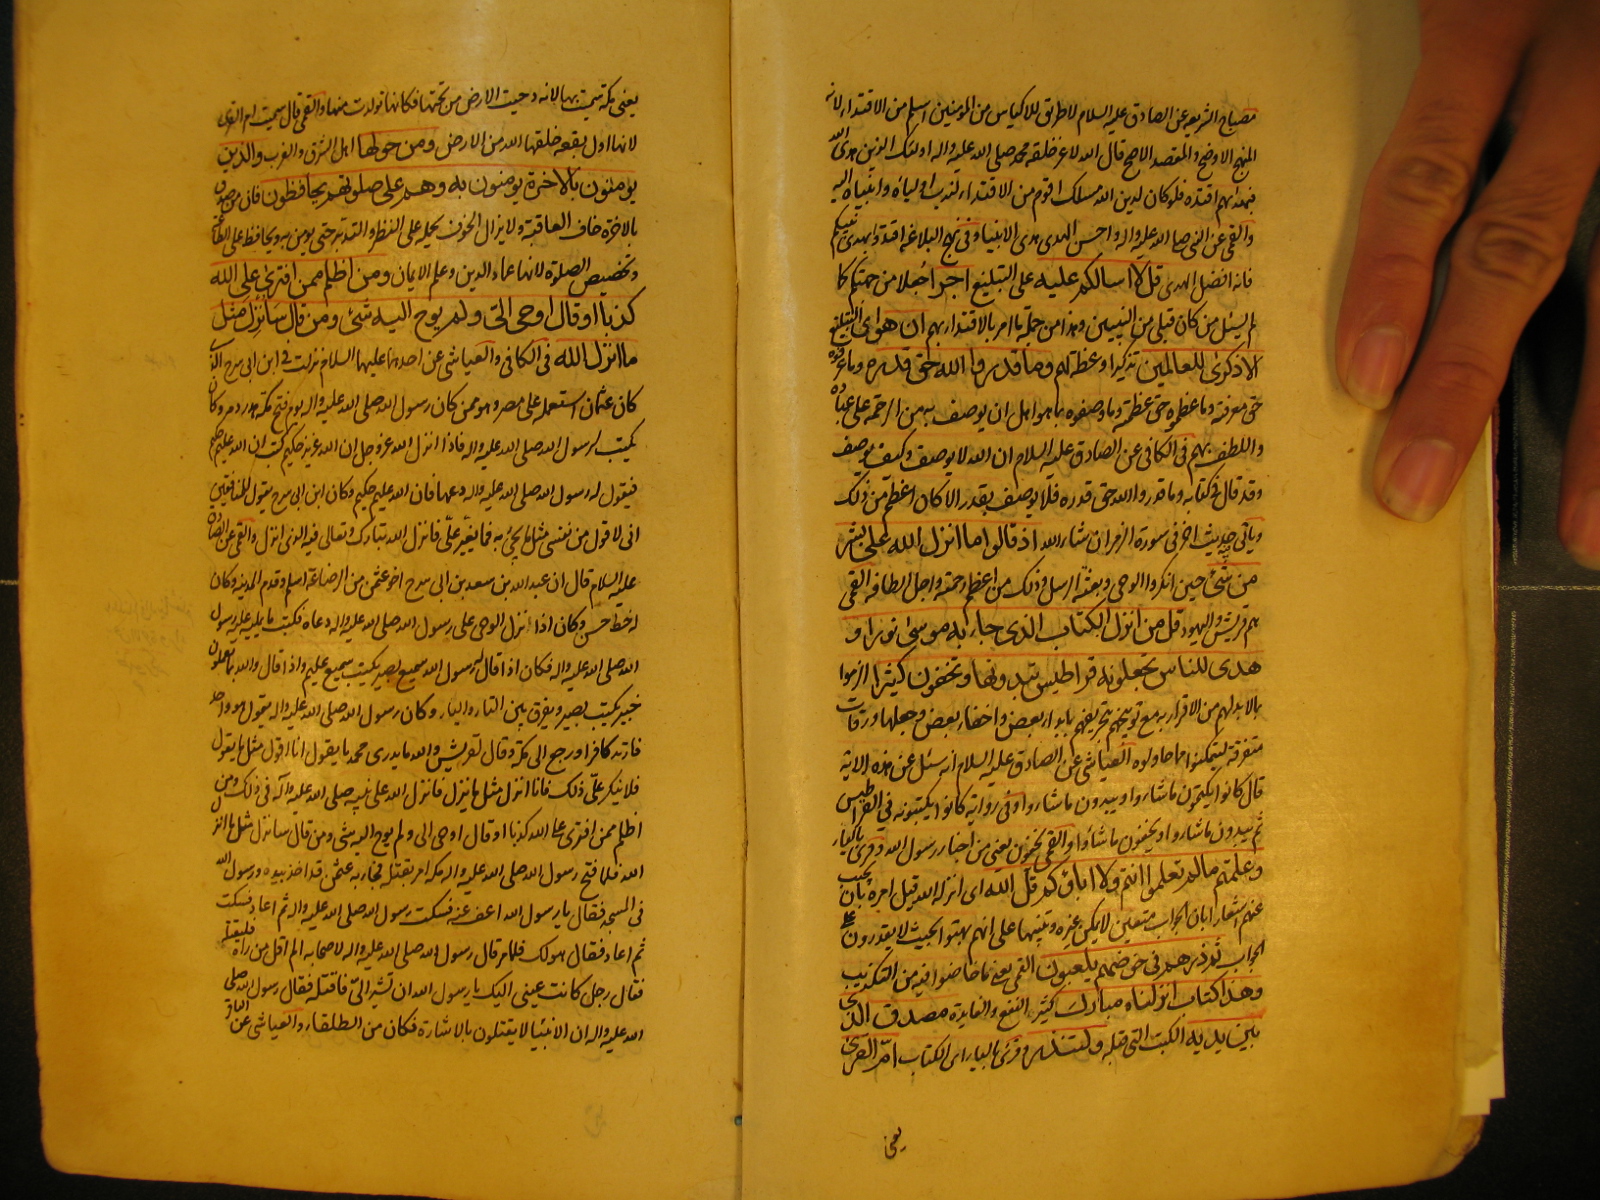 مصباح الشريعه عن الصادق عليه السلام لا طريق للاكياس من المؤمنين اسلم من الاقتداء لانه
المنهج الاوضح والمقصد الاصح قال الله لاعز خلقه محمد صلى الله عليه واله اولئك الذين هدى الله
فبهديهم اقتده فلو كان لدين الله مسلك اقوم من الاقتداء لندب اولياءه وانبياءه اليه
والقمى عن النبى صلى الله عليه واله واحسن الهدى هدى الانبياء وفى نهج البلاغه اقتدوا بهدى نبيكم
فانه افضل الهدى قل لا اسالكم عليه على التبليغ اجرا جعلا من جهتكم كما
لم يسئل من كان قبلى من النبيين وهذا من جملة ما امر بالاقتداء بهم ان هو اى التبليغ
الا ذكرى للعالمين تذكيرا وعظة لهم وما قدروا الله حق قدره وما عرفوه
حق معرفته وما عظموه حق عظمته وما وصفوه بما هو اهل ان يوصف به من الرحمة على عباده
واللطف بهم فى الكافى عن الصادق عليه السلام ان الله لا يوصف وكيف يوصف
وقد قال فى كتابه وما قدروا الله حق قدره فلا يوصف بقدر الا كان اعظم من ذلك
وياتى حديث اخر فى سورة الزمر ان شاء الله اذ قالوا ما انزل الله على بشر
من شئ حين انكروا الوحى وبعثة الرسل وذلك من اعظم رحمته واجل الطافه القمى
هم قريش واليهود قل من انزل الكتاب الذى جاء به موسى نورا و
هدى للناس تجعلونه قراطيس تبدونها وتخفون كثيرا الزموا
بالا بد لهم من الاقرار به مع توبيخهم بتحريفهم بابداء بعض واخفاء بعض وجعلها ورقات
متفرقة ليتمكنوا مما حاولوه العياشى عن الصادق عليه السلام انه سئل عن هذه الاية
قال كانوا يكتمون ما شاؤا ويبدون ما شاؤا وفى رواية كانوا يكتبونه فى القراطيس
ثم يبدون ما شاؤا ويخفون ما شاؤا والقمى تخفون يعنى من اخبار رسول الله وقرئ بالياء
وعلمتم ما لم تعلموا انتم ولا اباؤكم قل الله اى انزله الله قيل امره بان يجيب
عنهم اشعارا بان الجواب متعين لا يمكن غيره وتنبيها على انهم بهتوا بحيث لا يقدرون على
الجواب ثم ذرهم فى خوضهم يلعبون القمى يعنى ما خاضوا فيه من التكذيب
وهذا كتاب انزلناه مبارك كثير النفع والفايدة مصدق الذى
بين يديه الكتب التى قبله ولتنذر وقرئ بالياء اى الكتاب ام القرى
يعنى
يعنى مكة سميت بها لانه دحيت الارض من تحتها فكانها تولدت منها والقمى قال سميت ام القرى
لانها اول بقعة خلقها الله من الارض ومن حولها اهل الشرق والغرب والذين
يؤمنون بالاخرة يؤمنون به وهم على صلوتهم يحافظون فان من صدق
بالاخرة خاف العاقبة ولا يزال الخوف يحمله على النظر والتدبر حتى يومن به ويحافظ على الطاعة
وتخصيص الصلوة لانها عماد الدين وعلم الايمان ومن اظلم ممن افترى على الله
كذبا او قال اوحى الى ولم يوح اليه شئ ومن قال سانزل مثل
ما انزل الله فى الكافى والعياشى عن احدهما عليهما السلام نزلت فى ابن ابى سرح الذى
كان عثمن استعمله على مصر وهو ممن كان رسول الله صلى الله عليه واله يوم فتح مكة هدر دمه وكان
يكتب لرسول الله صلى الله عليه واله فاذا انزل الله عز وجل ان الله عزيز حكيم كتب ان الله عليم حكيم
فيقول له رسول الله صلى الله عليه واله دعها فان الله عليم حكيم وكان ابن ابى سرح يقول للمنافقين
انى لاقول من نفسى مثل ما يجئ به فما يغير على فانزل الله تبارك وتعالى فيه الذى انزل والقمى عن الصادق
عليه السلام قال ان عبد الله بن سعد بن ابى سرح اخو عثمن من الرضاعة اسلم وقدم المدينه وكان
له خط حسن وكان اذا نزل الوحى على رسول الله صلى الله عليه واله دعاه فكتب ما يمليه عليه رسول
الله صلى الله عليه واله فكان اذا قال له رسول الله سميع بصير يكتب سميع عليم واذا قال والله بما تعملون
خبير يكتب بصير ويفرق بين التاء والياء وكان رسول الله صلى الله عليه واله يقول هو واحد
فارتد كافرا ورجع الى مكة وقال لقريش والله ما يدرى محمد ما يقول انا اقول مثل ما يقول
فلا ينكر على ذلك فانا انزل مثل ما ينزل فانزل الله على نبيه صلى الله عليه وآله فى ذلك ومن
اظلم ممن افترى على الله كذبا او قال اوحى الى ولم يوح اليه شئ ومن قال سانزل مثل ما انزل
الله فلما فتح رسول الله صلى الله عليه واله مكة امر بقتله فجاء به عثمن قد اخذ بيده ورسول الله
فى المسجد فقال يا رسول الله اعف عنه فسكت رسول الله صلى الله عليه واله ثم اعاد فسكت
ثم اعاد فقال هو لك فلما مر قال رسول الله صلى الله عليه واله لاصحابه الم اقل من راه فليقتله
فقال رجل كانت عينى اليك يا رسول الله ان تشير الى فاقتله فقال رسول الله صلى
الله عليه واله ان الانبياء لا يقتلون بالاشارة فكان من الطلقاء والعياشى عن الباقر